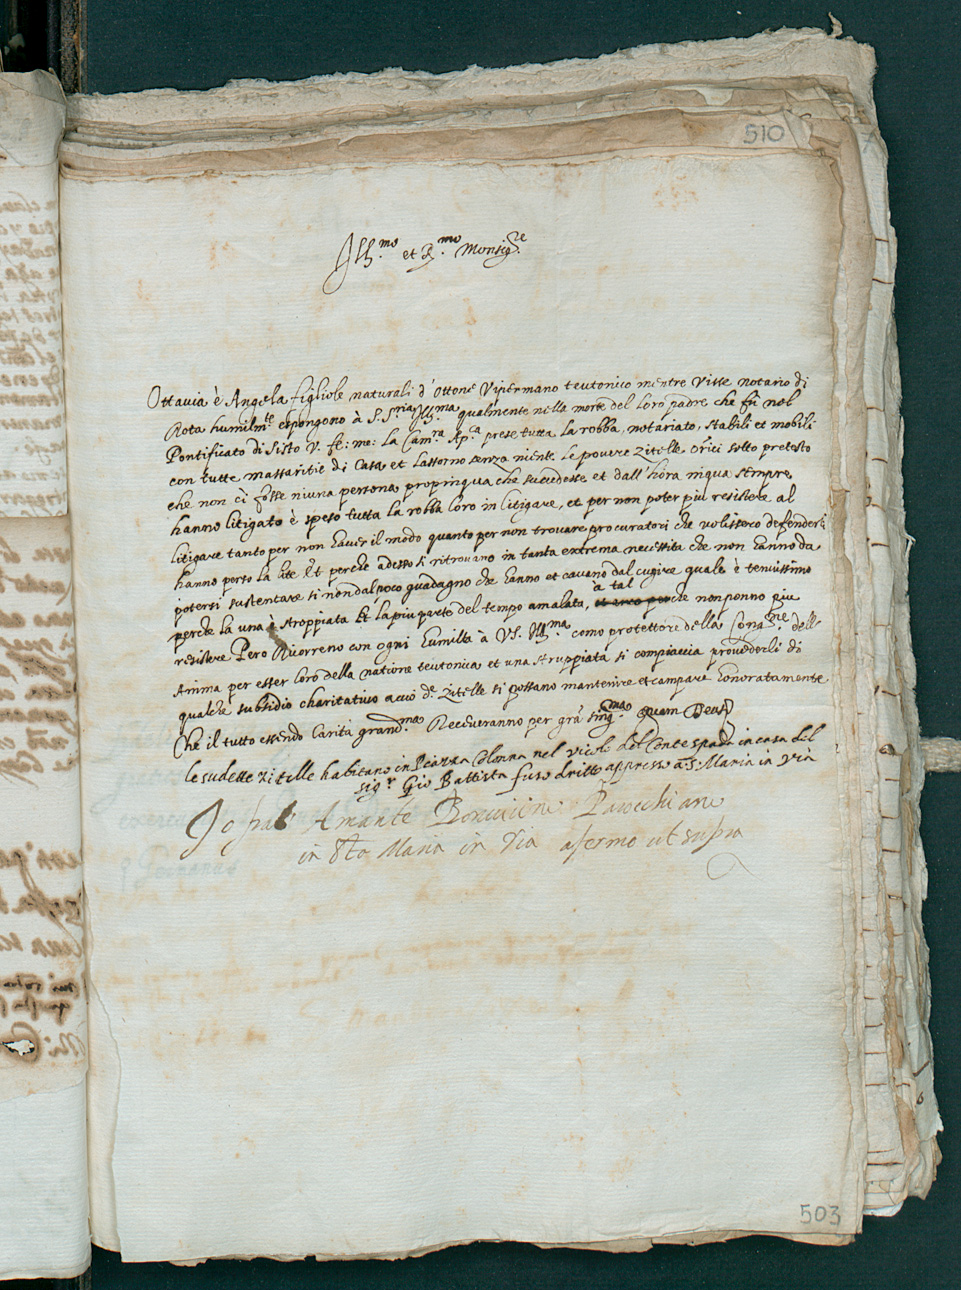 510
Ill.mo et R.mo Monsig.re
Ottavia è Angela figliole naturali d'Ottone Vipermano teutonico mentre visse notario di
Rota humilm.te espongono à S. S.ria Ill.ma qualmente nella morte del loro padre che fù nel
Pontificato di Sisto V. fe: me: la Cam.ra Ap.ca prese tutta la robba, notariato, stabili et mobili
con tutte massaritie di casa et lassorno senza niente le povere zitelle orfici sotto pretesto
che non ci fosse niuna persona propinqua che succedesse et dall'hora inqua sempre
hanno litigato è speso tutta la robba loro in litigare, et per non poter piu resistere al
litigare tanto per non haver il modo quanto per non trovare procuratori che volissero defenderli
hanno perso la lite Et perche adesso si ritrovano in tanta extrema necessita che non hanno da
potersi sustentare si non dal poco guadagno che hanno et cavano dal cugire quale è tenuissimo
perche la una è stroppiata et la piu parte del tempo amalata, a tal che non ponno piu
resistere Pero Ricorreno con ogni humiltà à VS. Ill.ma como protettore della Cong.ne dell'
Anima per esser loro della natione teutonica et una struppiata si compiaccia provederli di
qualche subsidio charitativo acciò d.e zitelle si possano mantenere et campare honoratamente
Che il tutto essendo Carità grand.ma Receveranno per grã sing.ma Quam Deus
le sudette zitelle habitano in Piazza Colonna nel vicolo del Conte spada in casa del
sig.r Gio Battista fuso dritto appresso a S. Maria in via
Io fra Amante Parochiano
in Sta Maria in Via afermo ut supra
503